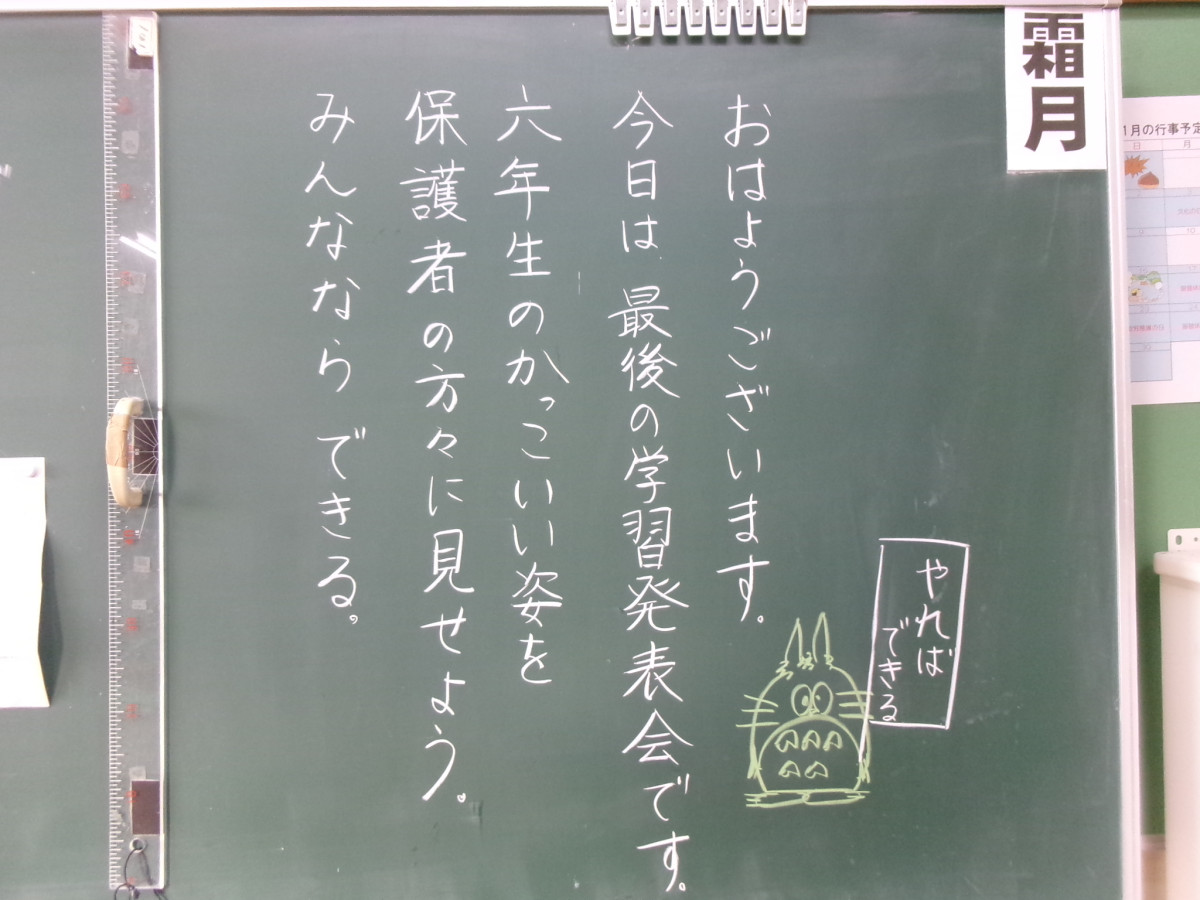 霜月
1月の行事予定
日 月
おはようございます。
今日は最後の学習発表会です。
六年生のかっこいい姿を
保護者の方々に見せよう。
みんなならできる。
やれば
できる